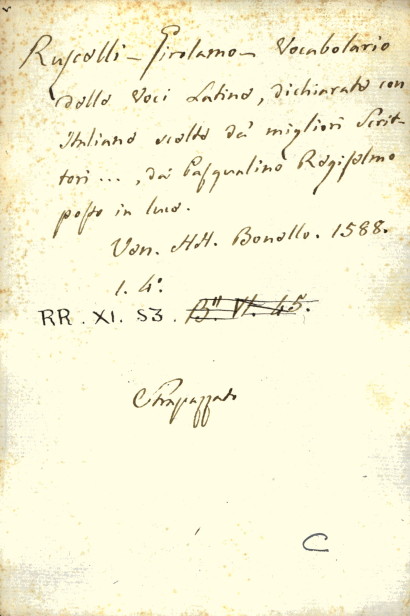 Ruscelli - Girolamo - Vocabolario
delle Voci Latine, dichiarate con
Italiane scelte da' migliori Scrit-
tori ..., da Pasqualino Regiselmo
posto in luce.
Ven. HH. Bonello. 1588.
1. 4.°
RR. XI. 53. B.ª VI. 45.
Strapazzato
C